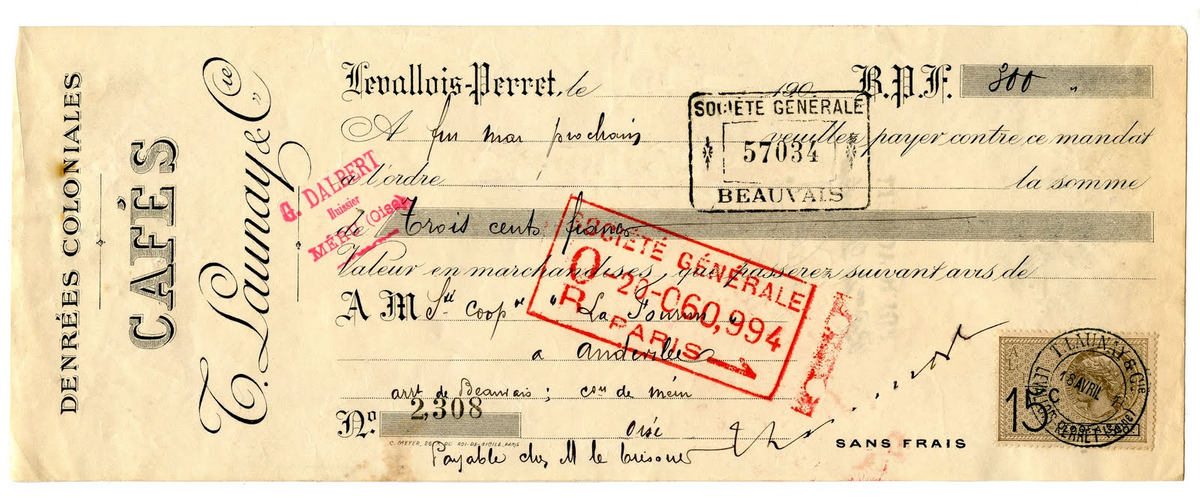 DENRÉES COLONIALES
CAFÉS
T. Launay & Cie
Levallois-Perret, le 190 B.P.F. 300 "
A fin mai prochain veuillez payer contre ce mandat
à l'ordre la somme
de Trois cents francs
Valeur en marchandises, que passerez suivant avis de
A M Sté Coop ve "La Fourmi"
a Andeville
arrt de Beauvais ; con de Méru
Oise
No. 2,308
C. MEYER, 26, R. DU ROI-DE-SICILE, PARIS
Payable chez M le trésorier
SANS FRAIS
G. DALBERT
Huissier
MÉRU (Oise)
SOCIÉTÉ GÉNÉRALE
57034
BEAUVAIS
SOCIÉTÉ GÉNÉRALE
O-20-060,994
R PARIS
15 C
T. LAUNAY & Cie
18 AVRIL
LEVALLOIS-PERRET (SEINE)